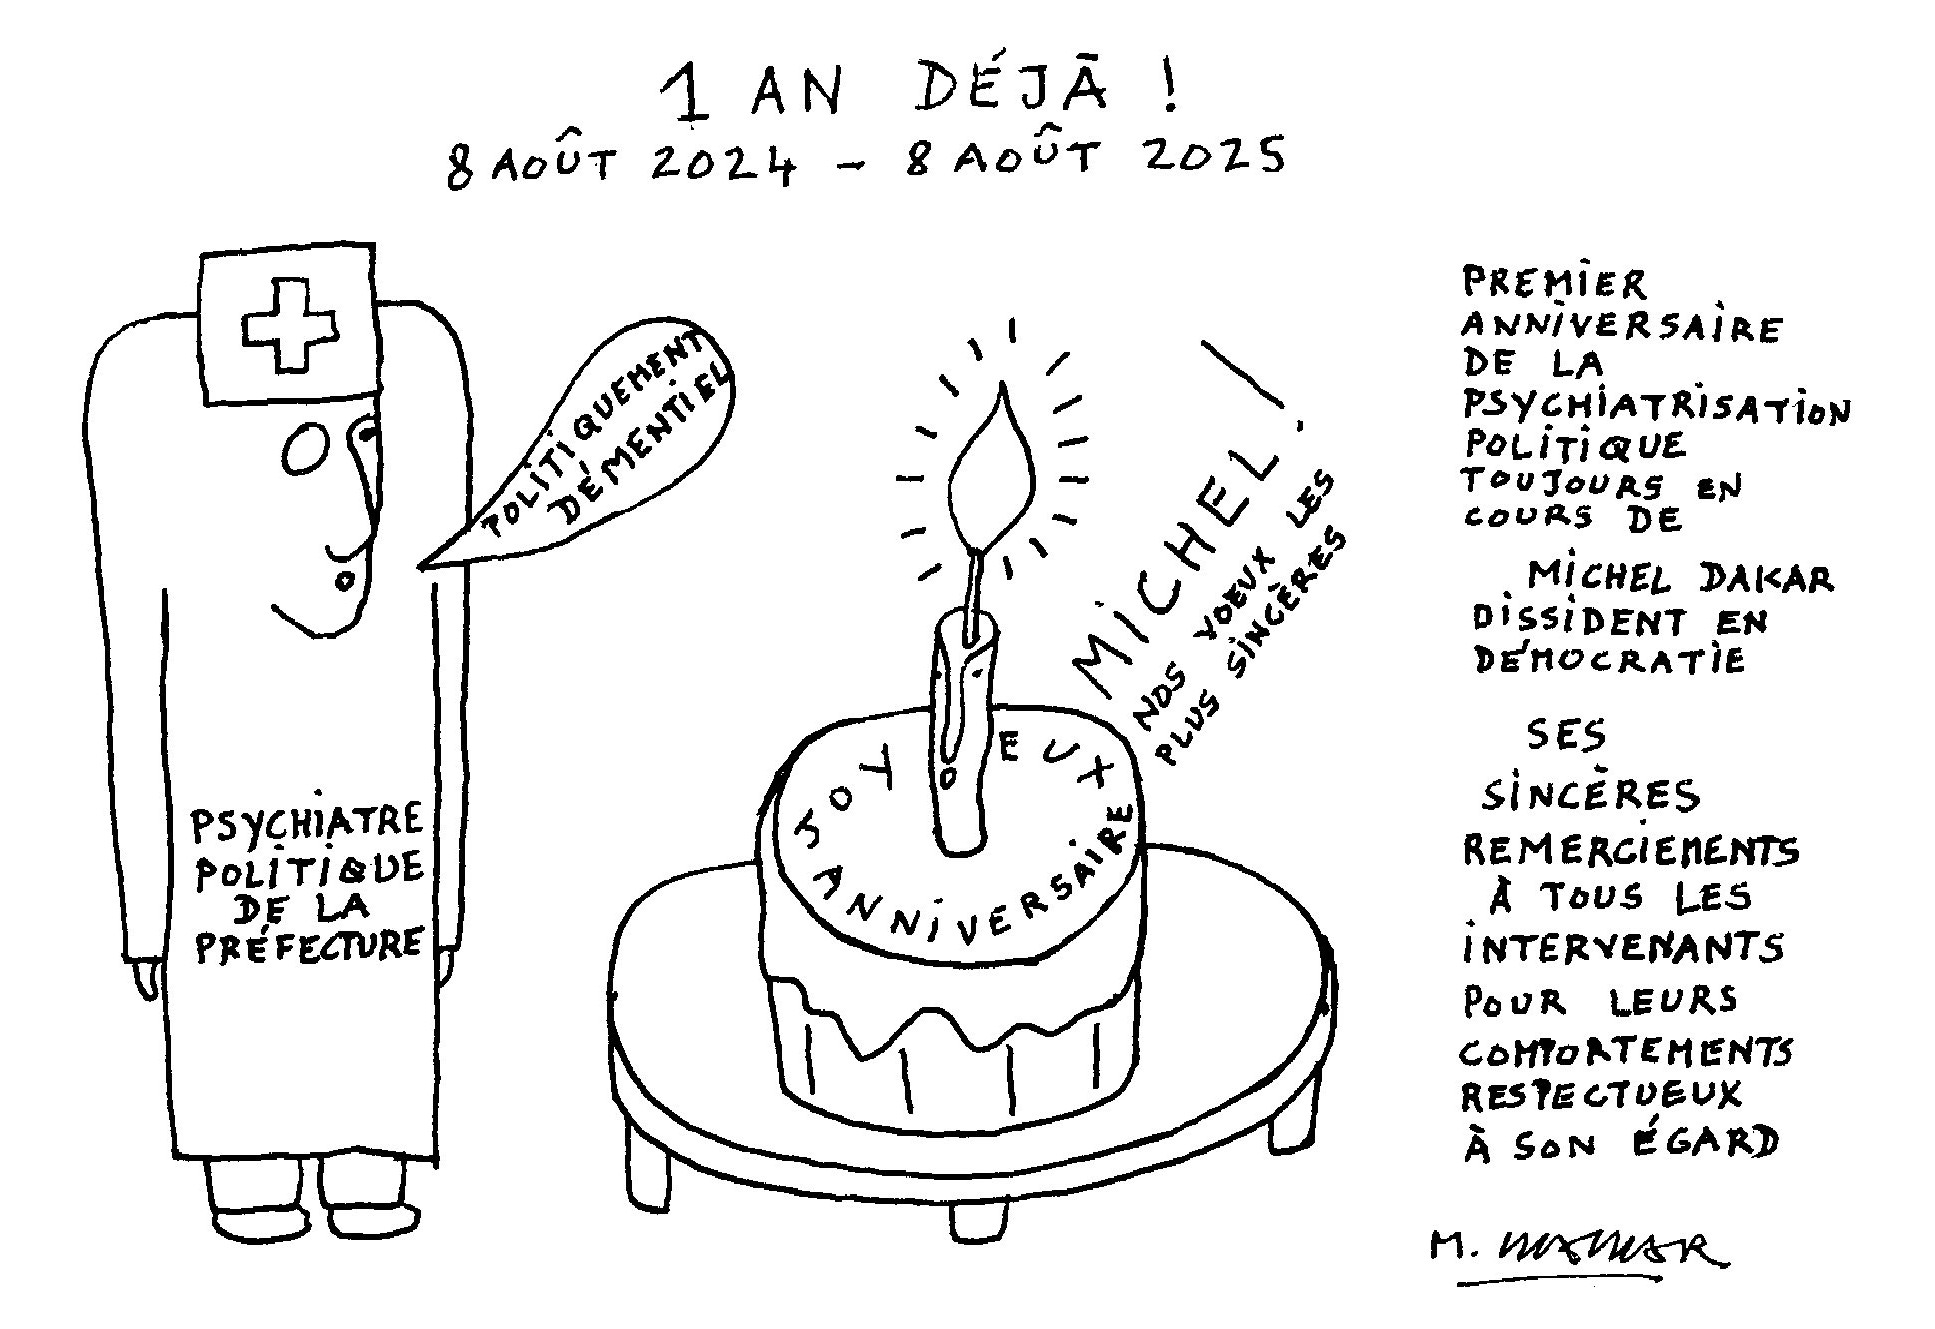 1 AN DÉJÀ !
8 AOÛT 2024 - 8 AOÛT 2025
POLITIQUEMENT
DÉMENTIEL
PSYCHIATRE
POLITIQUE
DE LA
PRÉFECTURE
JOYEUX
ANNIVERSAIRE
MICHEL !
NOS VOEUX LES
PLUS SINCÈRES
PREMIER
ANNIVERSAIRE
DE LA
PSYCHIATRISATION
POLITIQUE
TOUJOURS EN
COURS DE
MICHEL DAKAR
DISSIDENT EN
DÉMOCRATIE
SES
SINCÈRES
REMERCIEMENTS
À TOUS LES
INTERVENANTS
POUR LEURS
COMPORTEMENTS
RESPECTUEUX
À SON ÉGARD
M.